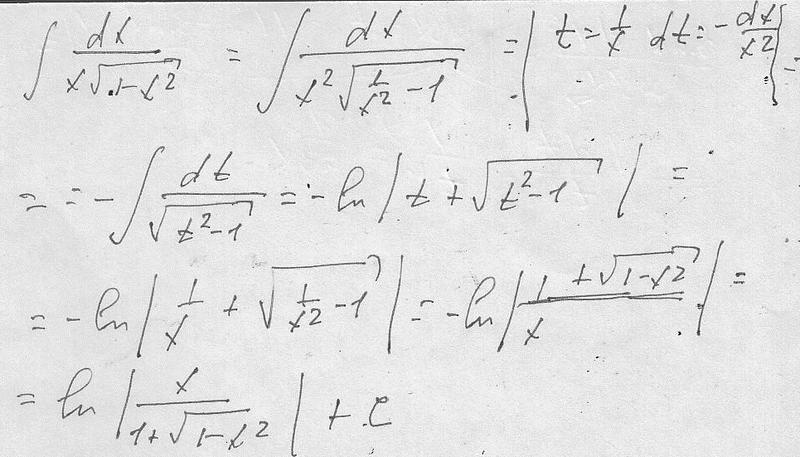 ∫ dx / (x√(1-x²)) = ∫ dx / (x²√(1/x² - 1)) = | t = 1/x dt = -dx/x² | =
= = -∫ dt / √(t²-1) = -ln | t + √(t²-1) | =
= -ln | 1/x + √(1/x² - 1) | = -ln | (1 + √(1-x²)) / x | =
= ln | x / (1+√(1-x²)) | + C